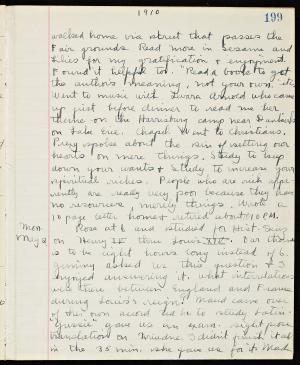 1910
199
walked home via street that passes the
Fair grounds. Read more in Sesame and
Lilies for my gratification & enjoyment.
Found it helpful too. "Read a book to get
the author's meaning, not your own," etc.
Went to music with
up just before dinner to read me her
theme on the Harrisburg camp near Dunbar's
on Lake Erie. Chapel. Went to Christians.
Prexy spoke about the sin of setting our
hearts on mere things. Study to keep
down your wants & study to increase your
spiritual riches. People who are rich
are really very poor because they have
no resources, merely things. Wrote a
10 page letter home & retired about 10 P.M.
Mon.
May 2
Rose at 6 and studied for Hist. Quiz
on Henry IV thru Louis XIV. Our
is to be eight hours long instead of 6.
asked us this question & I
enjoyed answering it. What
were there between England and France
during Louis's reign? Maud came over
of her own accord
gave us an exam. sight prose
translation on Ariadne. I didn't finish it all
in the 35 min. she gave us for it. Mad